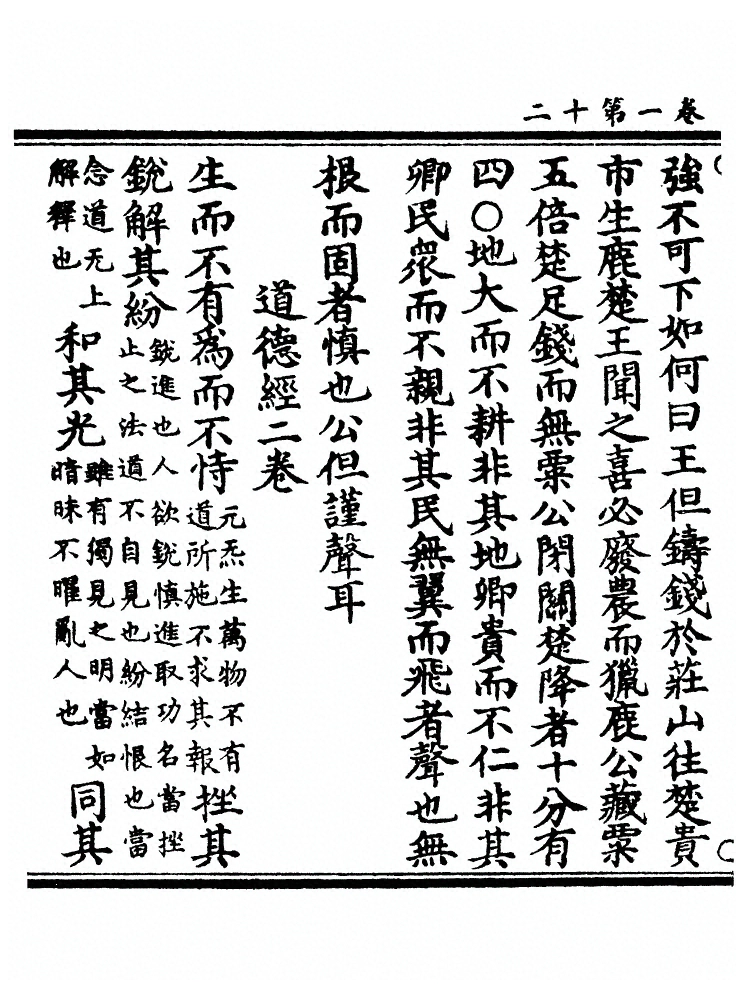 卷一第十二
強不可下如何曰王但鑄錢於莊山往楚貴
市生鹿楚王聞之喜必廢農而獵鹿公藏粟
五倍楚足錢而無粟公閉關楚降者十分有
四○地大而不耕非其地卿貴而不仁非其
卿民衆而不親非其民無翼而飛者聲也無
根而固者慎也公但謹聲耳
道德經二卷
生而不有為而不恃元炁生萬物不有道所施不求其報挫其
銳解其紛銳進也人欲銳慎進取功名當挫止之法道不自見也紛結恨也當
念道无上解釋也和其光雖有獨見之明當如暗昧不曜亂人也同其